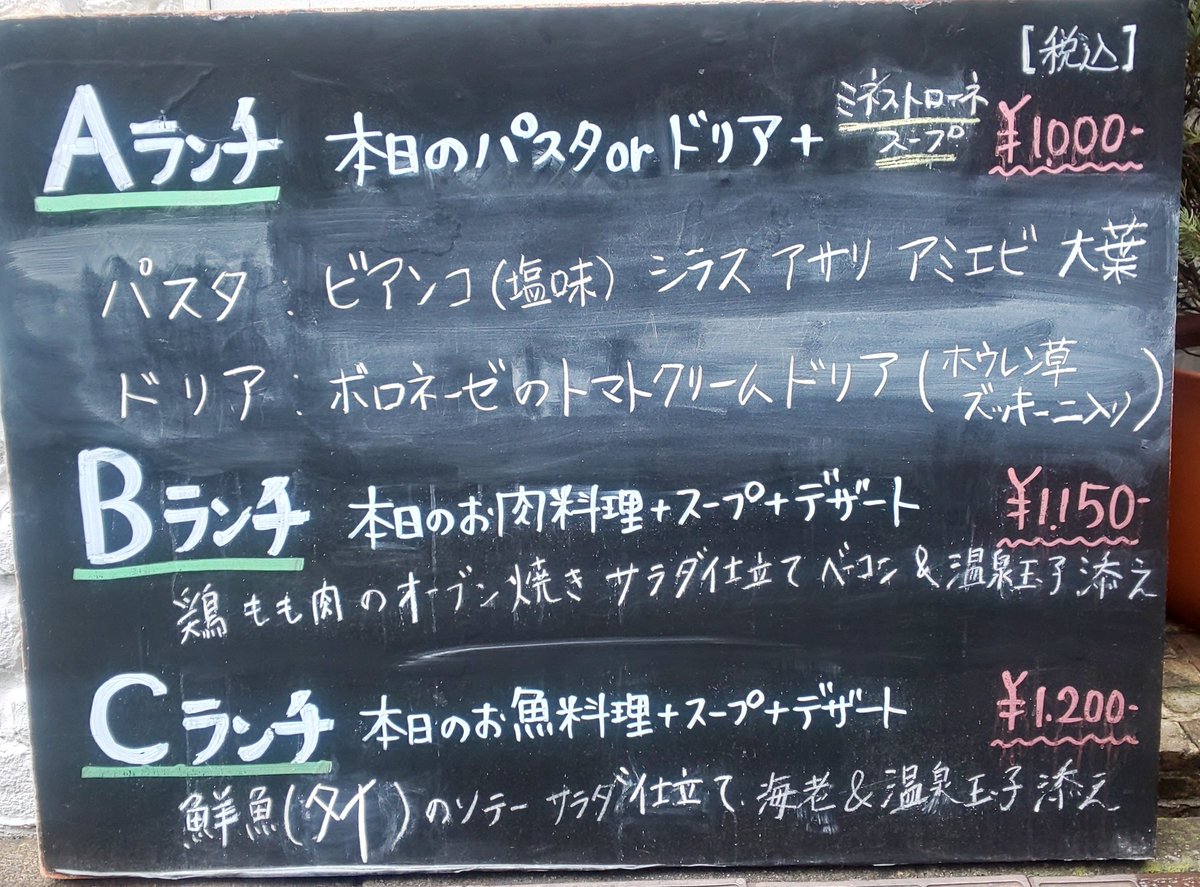 [税込]
Aランチ 本日のパスタorドリア+ ミネストローネスープ ¥1.000-
パスタ: ビアンコ(塩味) シラス アサリ アミエビ 大葉
ドリア: ボロネーゼのトマトクリームドリア(ホウレン草 ズッキーニ入り)
Bランチ 本日のお肉料理+スープ+デザート ¥1.150-
鶏もも肉のオーブン焼き サラダ仕立て ベーコン&温泉玉子添え
Cランチ 本日のお魚料理+スープ+デザート ¥1.200-
鮮魚(タイ)のソテー サラダ仕立て 海老&温泉玉子添え